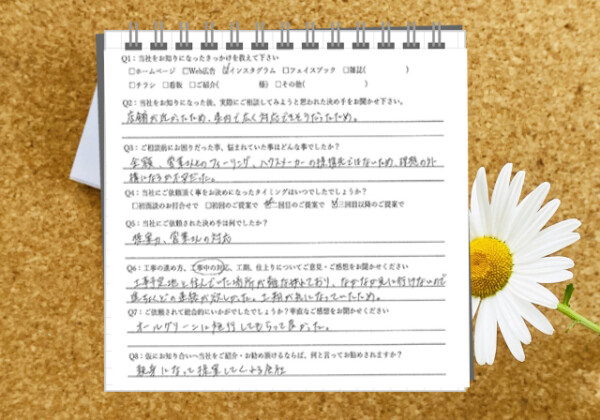 Q1：当社をお知りになったきっかけを教えて下さい
□ホームページ □Web広告 ☑インスタグラム □フェイスブック □雑誌( )
□チラシ □看板 □ご紹介( 様) □その他( )
Q2：当社をお知りになった後、実際にご相談してみようと思われた決め手をお聞かせ下さい。
店舗が近かったため、案内で広く対応できそうだったため。
Q3：ご相談前にお困りだった事、悩まれていた事はどんな事でしたか？
金額、営業さんとのフィーリング、ハウスメーカーの提携先ではないため、理想の外
構になるか不安だった。
Q4：当社にご依頼頂く事をお決めになったタイミングはいつでしたでしょうか？
□初面談のお打合せで □初回のご提案で ☑二回目のご提案で ☑三回目以降のご提案で
Q5：当社にご依頼された決め手は何でしたか？
提案力、営業さんの対応
Q6：工事の進め方、工事中の対応、工期、仕上りについてご意見・ご感想をお聞かせください
工事予定地と住んでいた場所が離れており、なかなか見に行けないので
進ちょくどの連絡が欲しかった。工期が気になっていたため。
Q7：ご依頼されて総合的にいかがでしたでしょうか？率直なご感想をお聞かせください
オールグリーンに施行してもらって良かった。
Q8：仮にお知り合いへ当社をご紹介・お勧め頂けるならば、何と言ってお勧めされますか？
親身になって提案してくれる会社